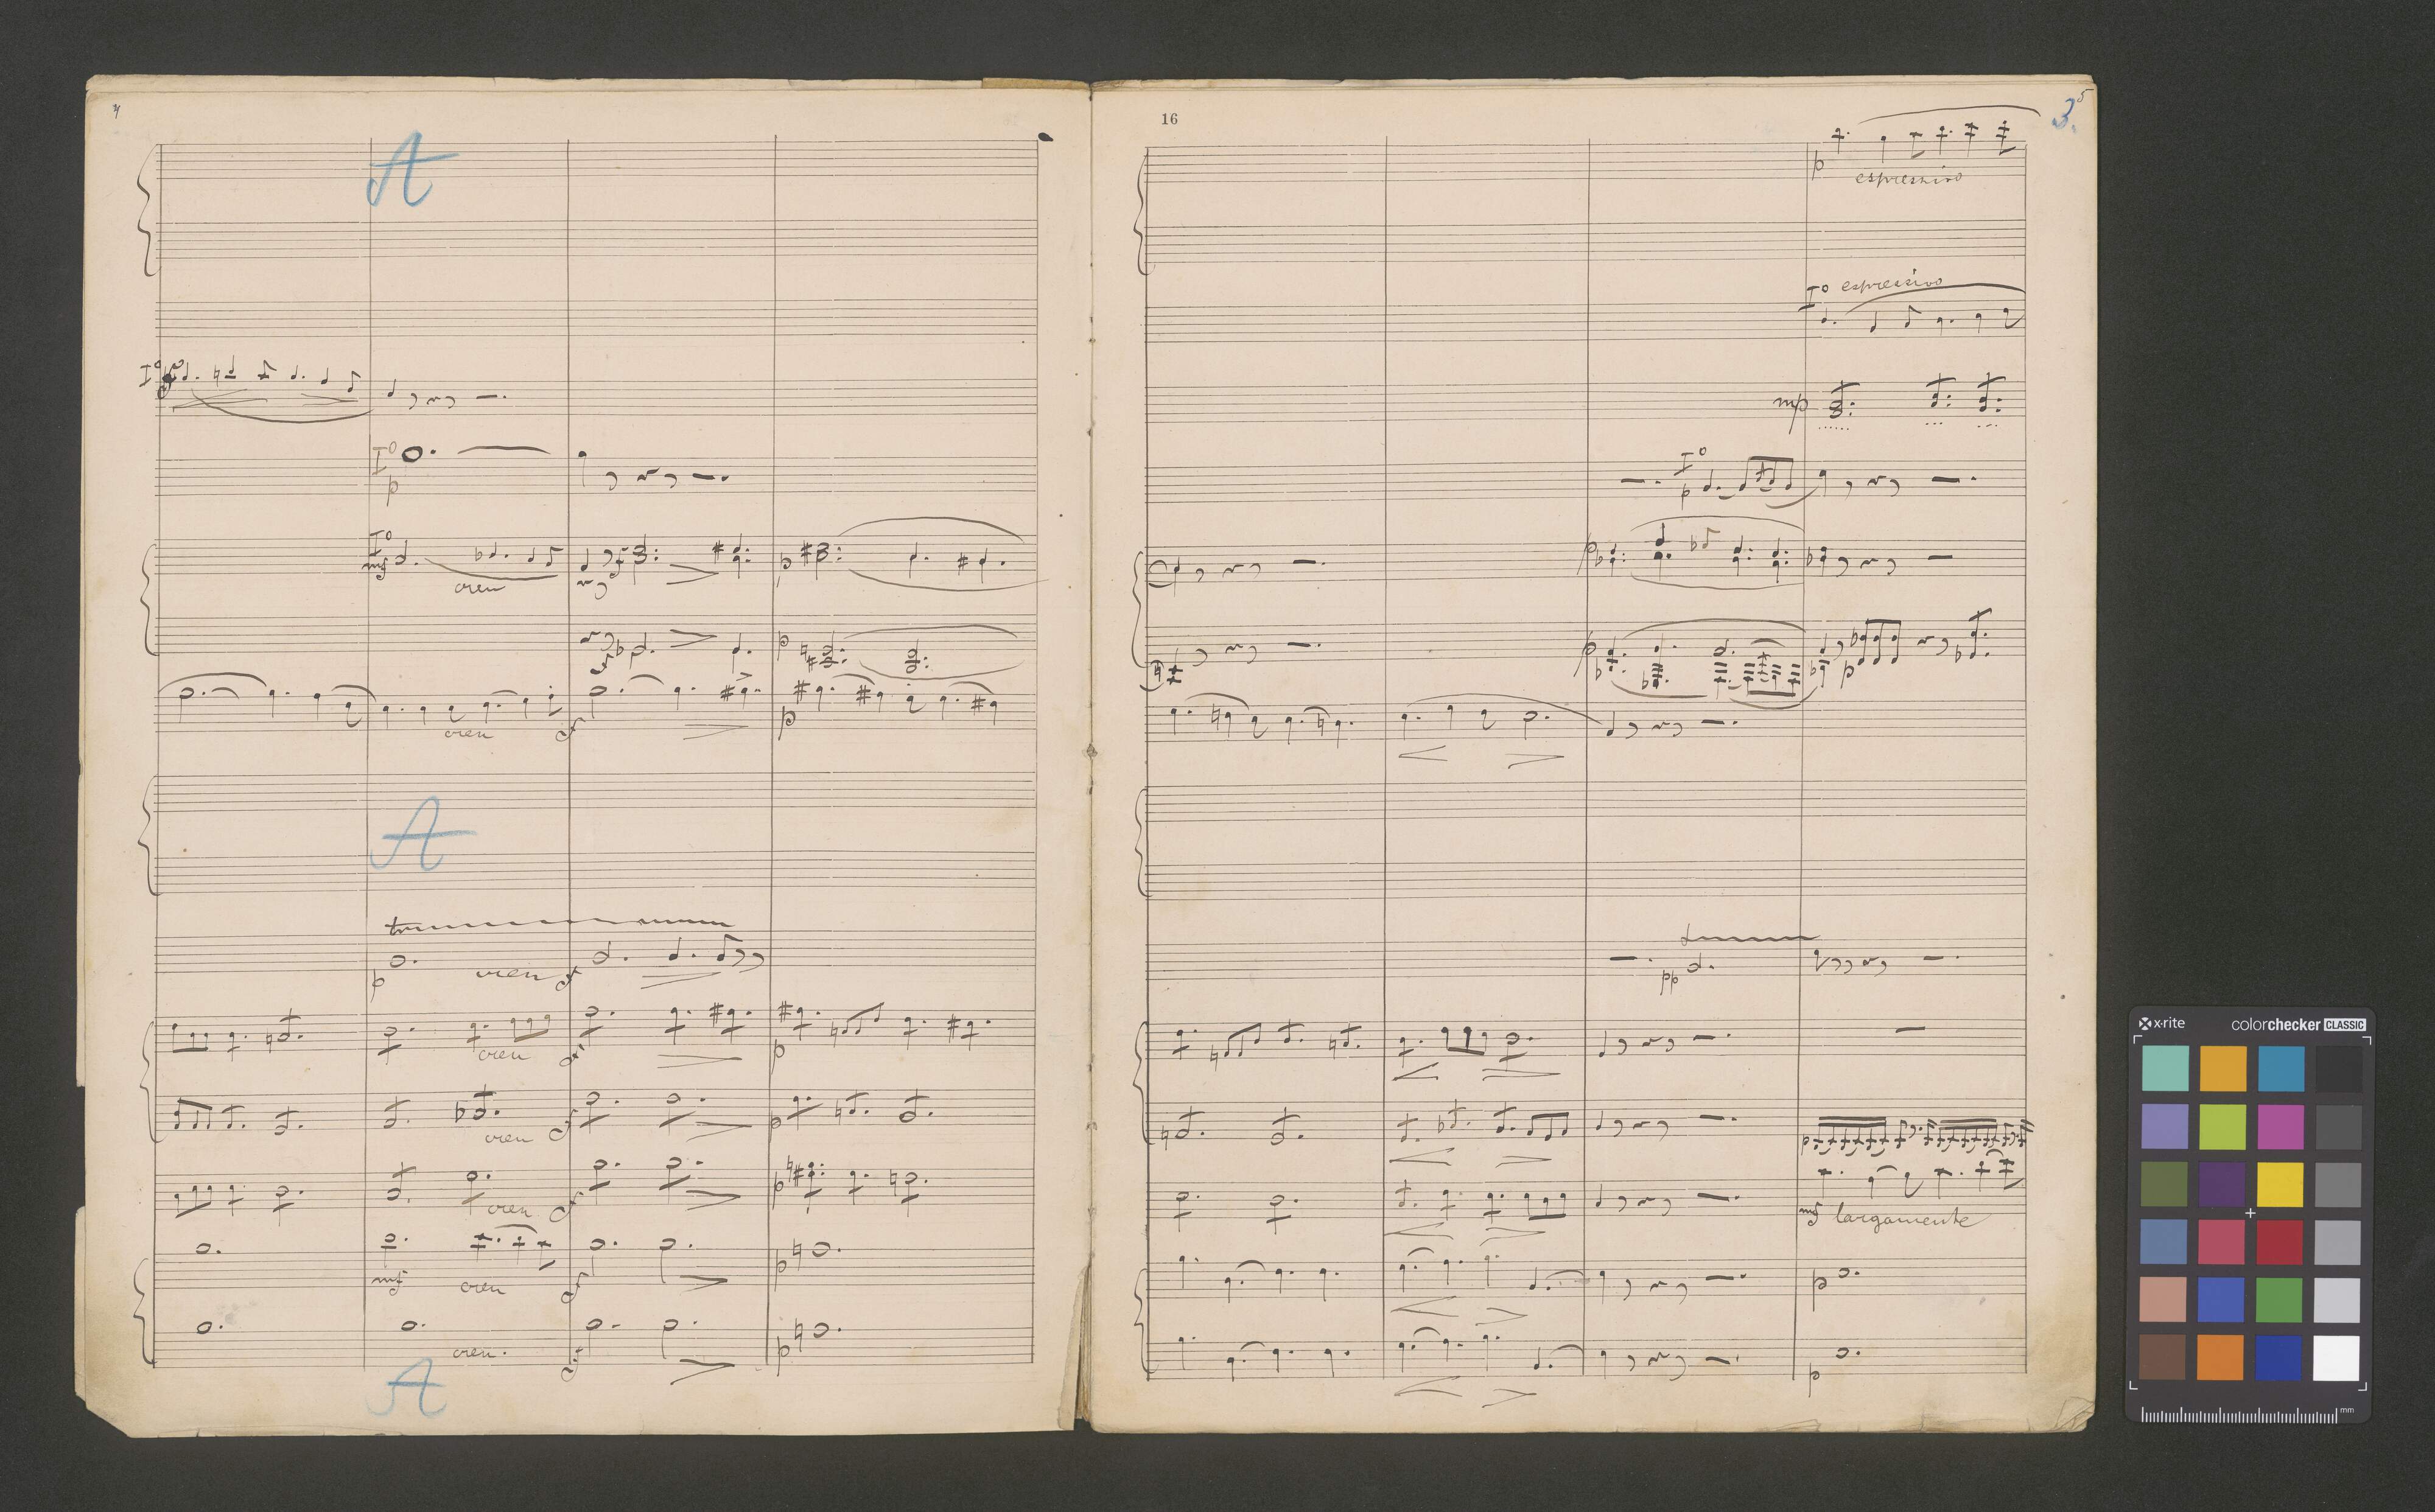 4
A
I°
I°
p
I°
mf
cren
f
p
f
p
cren
f
p
A
tr
p
cren
f
cren
f
p
cren
f
p
cren
f
p
mf
cren
f
p
cren.
f
p
A
16
5
3.
p
espressivo
I° espressivo
mp
I°
p
p
p
p
pp
p
mf largamente
p
p
x-rite
colorchecker CLASSIC
mm